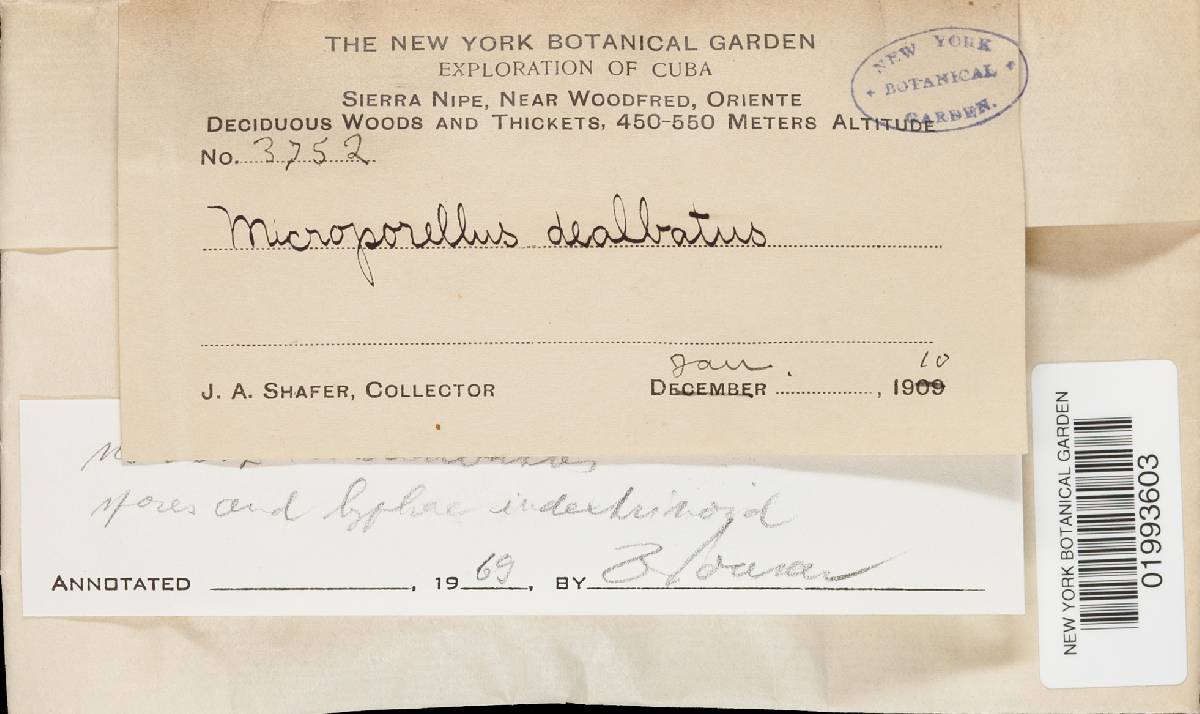 THE NEW YORK BOTANICAL GARDEN
EXPLORATION OF CUBA
SIERRA NIPE, NEAR WOODFRED, ORIENTE
DECIDUOUS WOODS AND THICKETS, 450-550 METERS ALTITUDE
NEW YORK
BOTANICAL
GARDEN.
No. 3752
Microporellus dealbatus
J. A. SHAFER, COLLECTOR
Jan. 10
DECEMBER, 1909
spores and hyphae indextrinoid
ANNOTATED, 1969, BY
NEW YORK BOTANICAL GARDEN
01993603